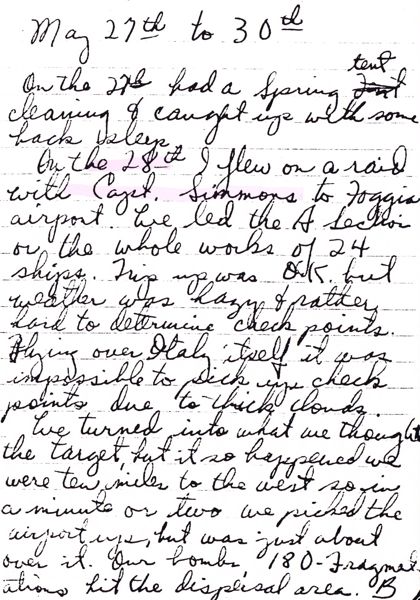 May 27th to 30th
On the 27th had a Spring tent
cleaning & caught up with some
back sleep.
On the 28th I flew on a raid
with Capt. Simmons to Foggia
airport. We led the A Section
or, the whole works of 24
ships. Trip up was O.K. but
weather was hazy & rather
hard to determine check points.
Flying over Italy itself it was
impossible to pick up check
points due to thick clouds.
We turned into what we thought
the target, but it so happened we
were ten miles to the west so in
a minute or two we picked the
airport up, but was just about
over it. Our bombs 180-Fragment
ations hit the dispersal area. B